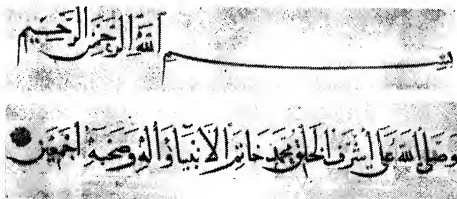 بسم الله الرحمن الرحيم
وصلى الله على اشرف الخلق محمد خاتم الانبيا وآله وصحبه اجمعين